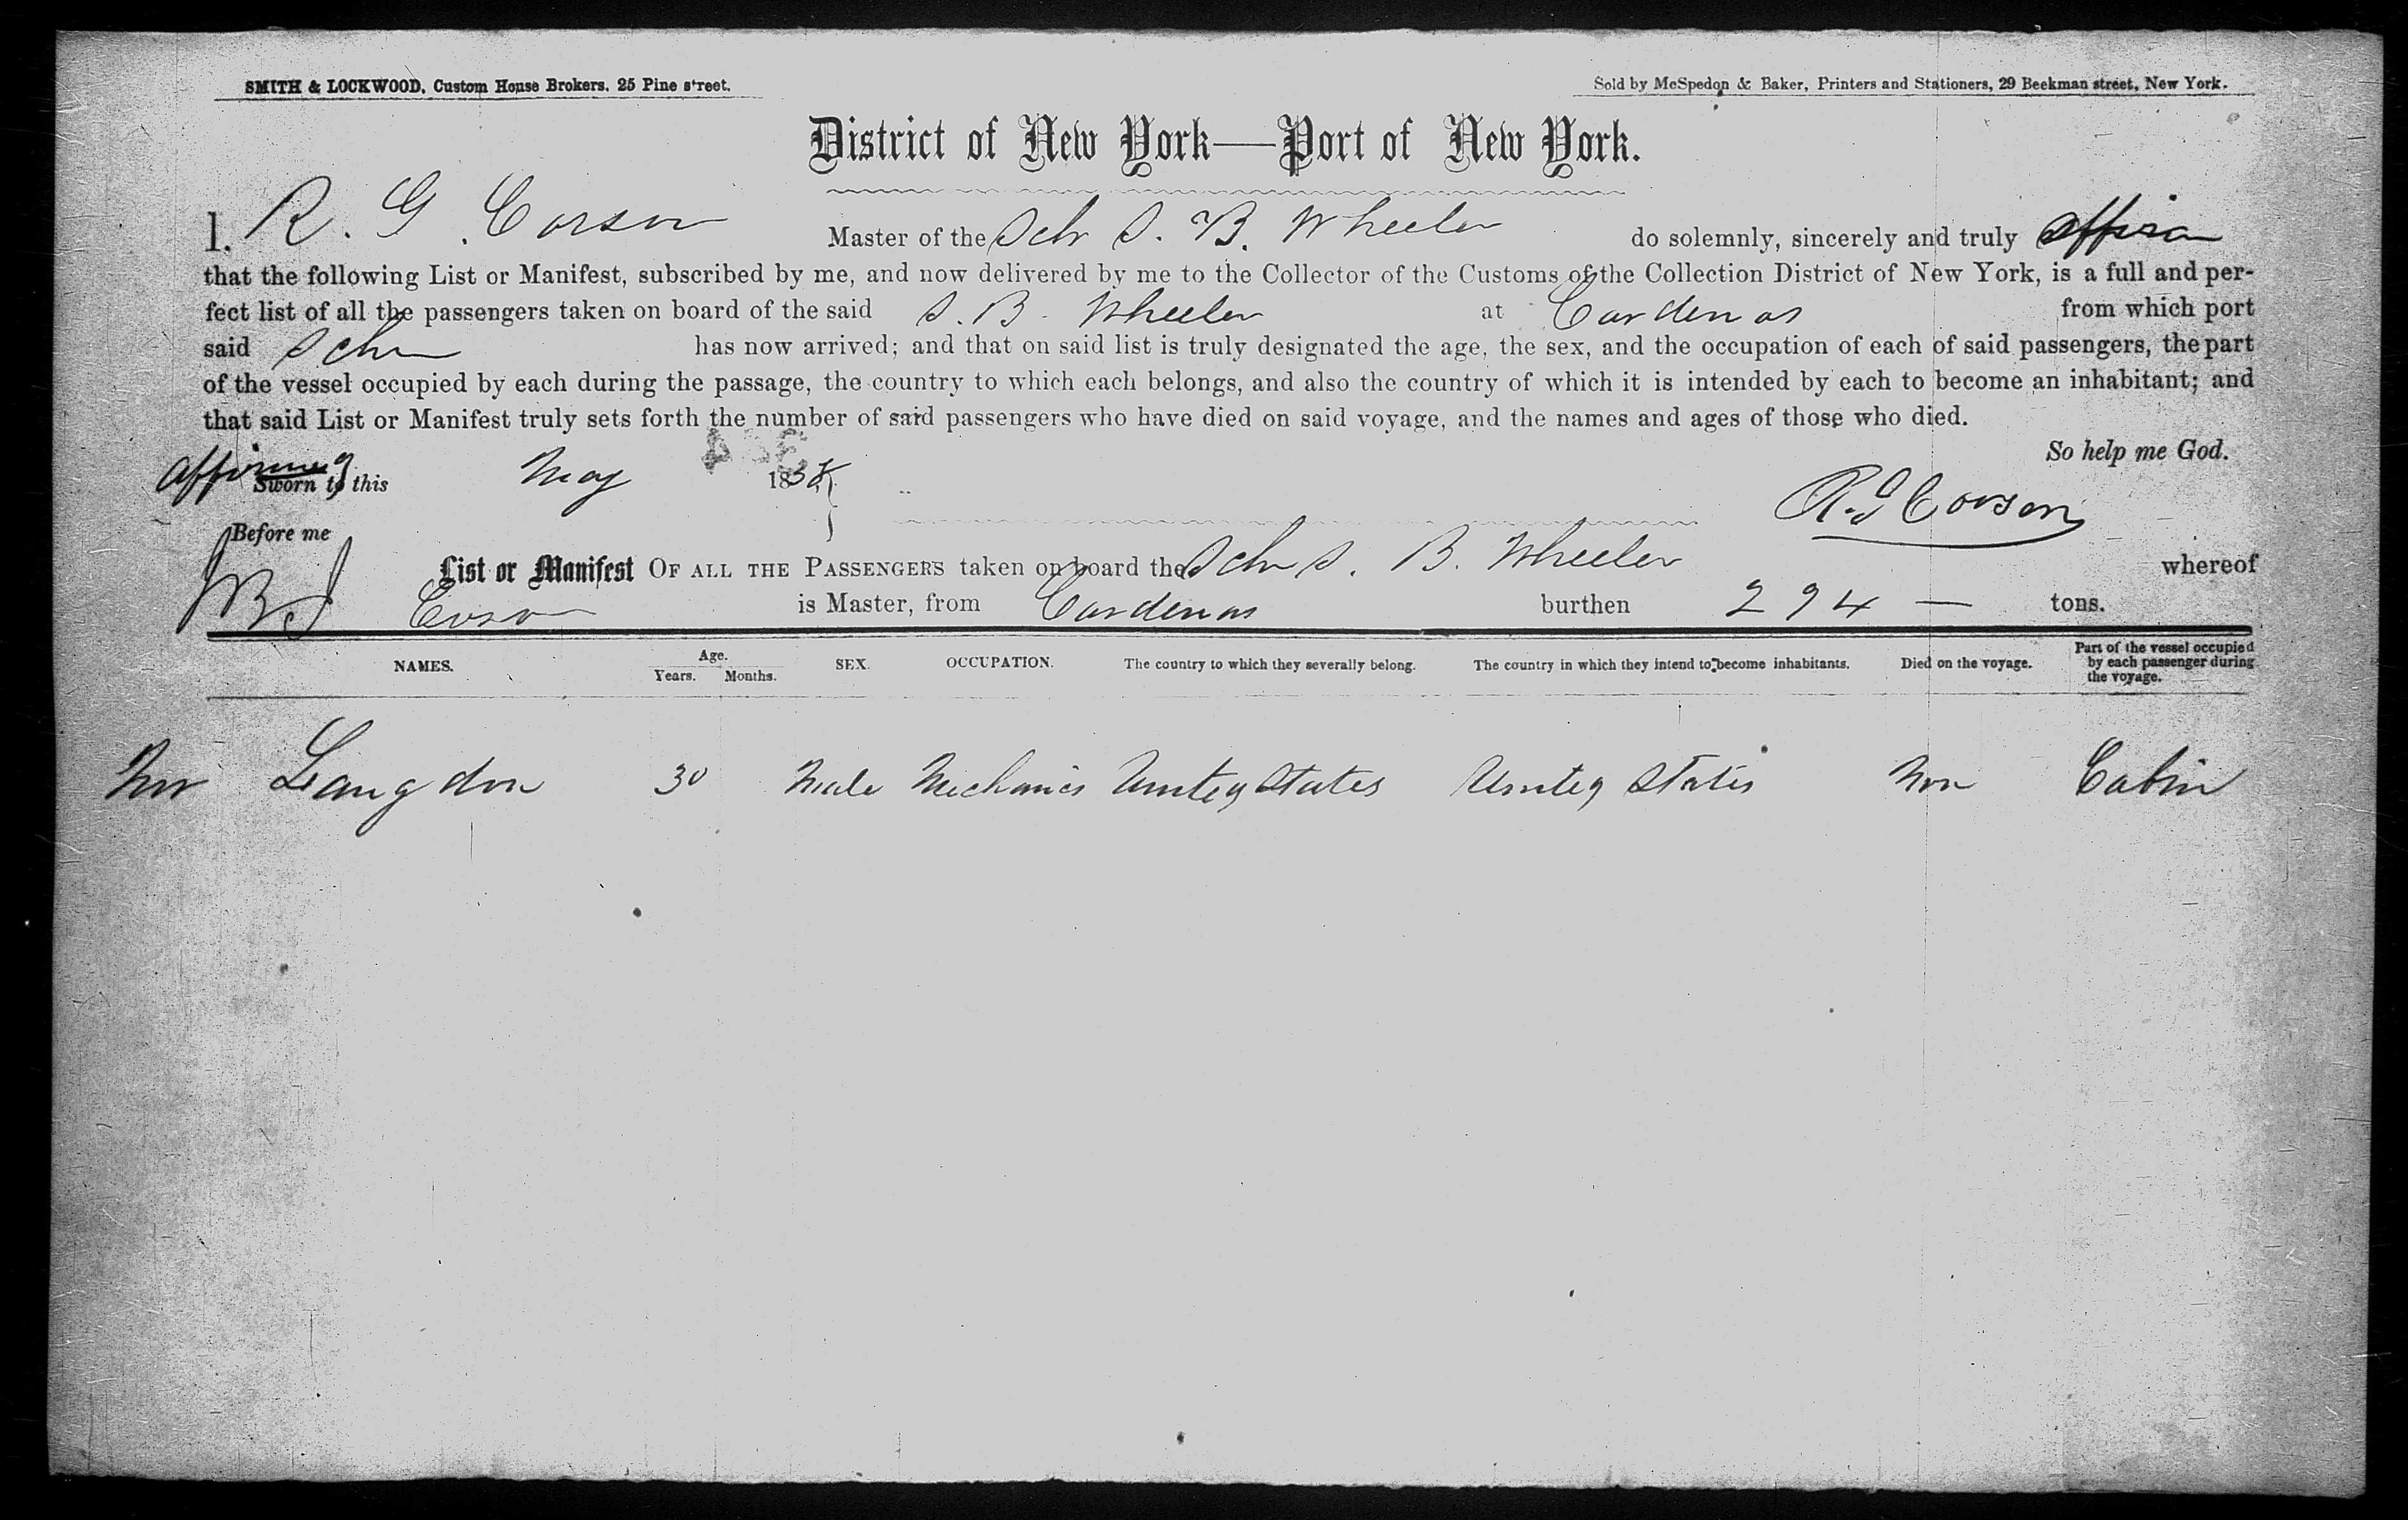 SMITH & LOCKWOOD, Custom House Brokers. 25 Pine street.
Sold by McSpedon & Baker, Printers and Stationers, 29 Beekman street, New York.
District of New York—Port of New York.
I. R. G. Corson Master of the Schr S. B. Wheeler do solemnly, sincerely and truly affirm
that the following List or Manifest, subscribed by me, and now delivered by me to the Collector of the Customs of the Collection District of New York, is a full and per-
fect list of all the passengers taken on board of the said S. B. Wheeler at Cardenas from which port
said Schr has now arrived; and that on said list is truly designated the age, the sex, and the occupation of each of said passengers, the part
of the vessel occupied by each during the passage, the country to which each belongs, and also the country of which it is intended by each to become an inhabitant; and
that said List or Manifest truly sets forth the number of said passengers who have died on said voyage, and the names and ages of those who died.
So help me God.
affirmed
Sworn to this May 18
R. G Corson
Before me
List or Manifest OF ALL THE PASSENGERS taken on board the Schr S. B. Wheeler whereof
Corson is Master, from Cardenas burthen 294 — tons.
NAMES. Age. Years. Months. SEX. OCCUPATION. The country to which they severally belong. The country in which they intend to become inhabitants. Died on the voyage. Part of the vessel occupied by each passenger during the voyage.
Langdon 30 Male Mechanics United States United States Cabin